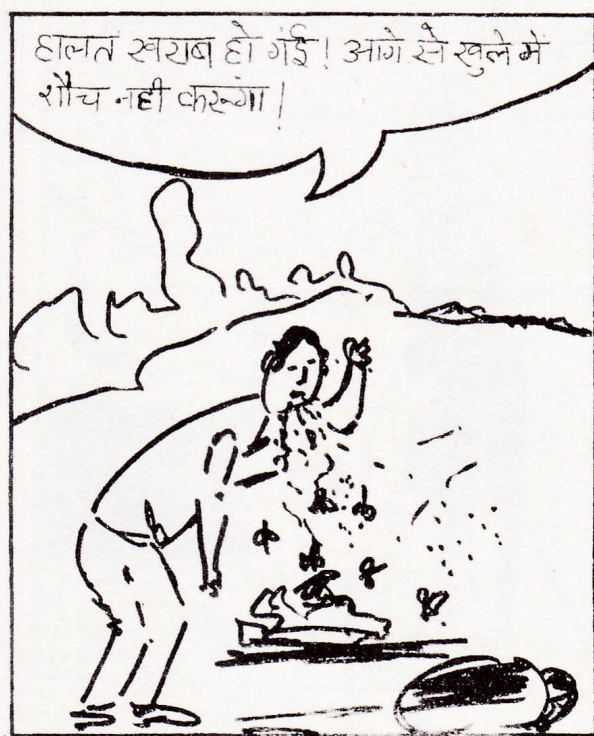 हालत खराब हो गई! आगे से खुले में
शौच नही करूंगा!